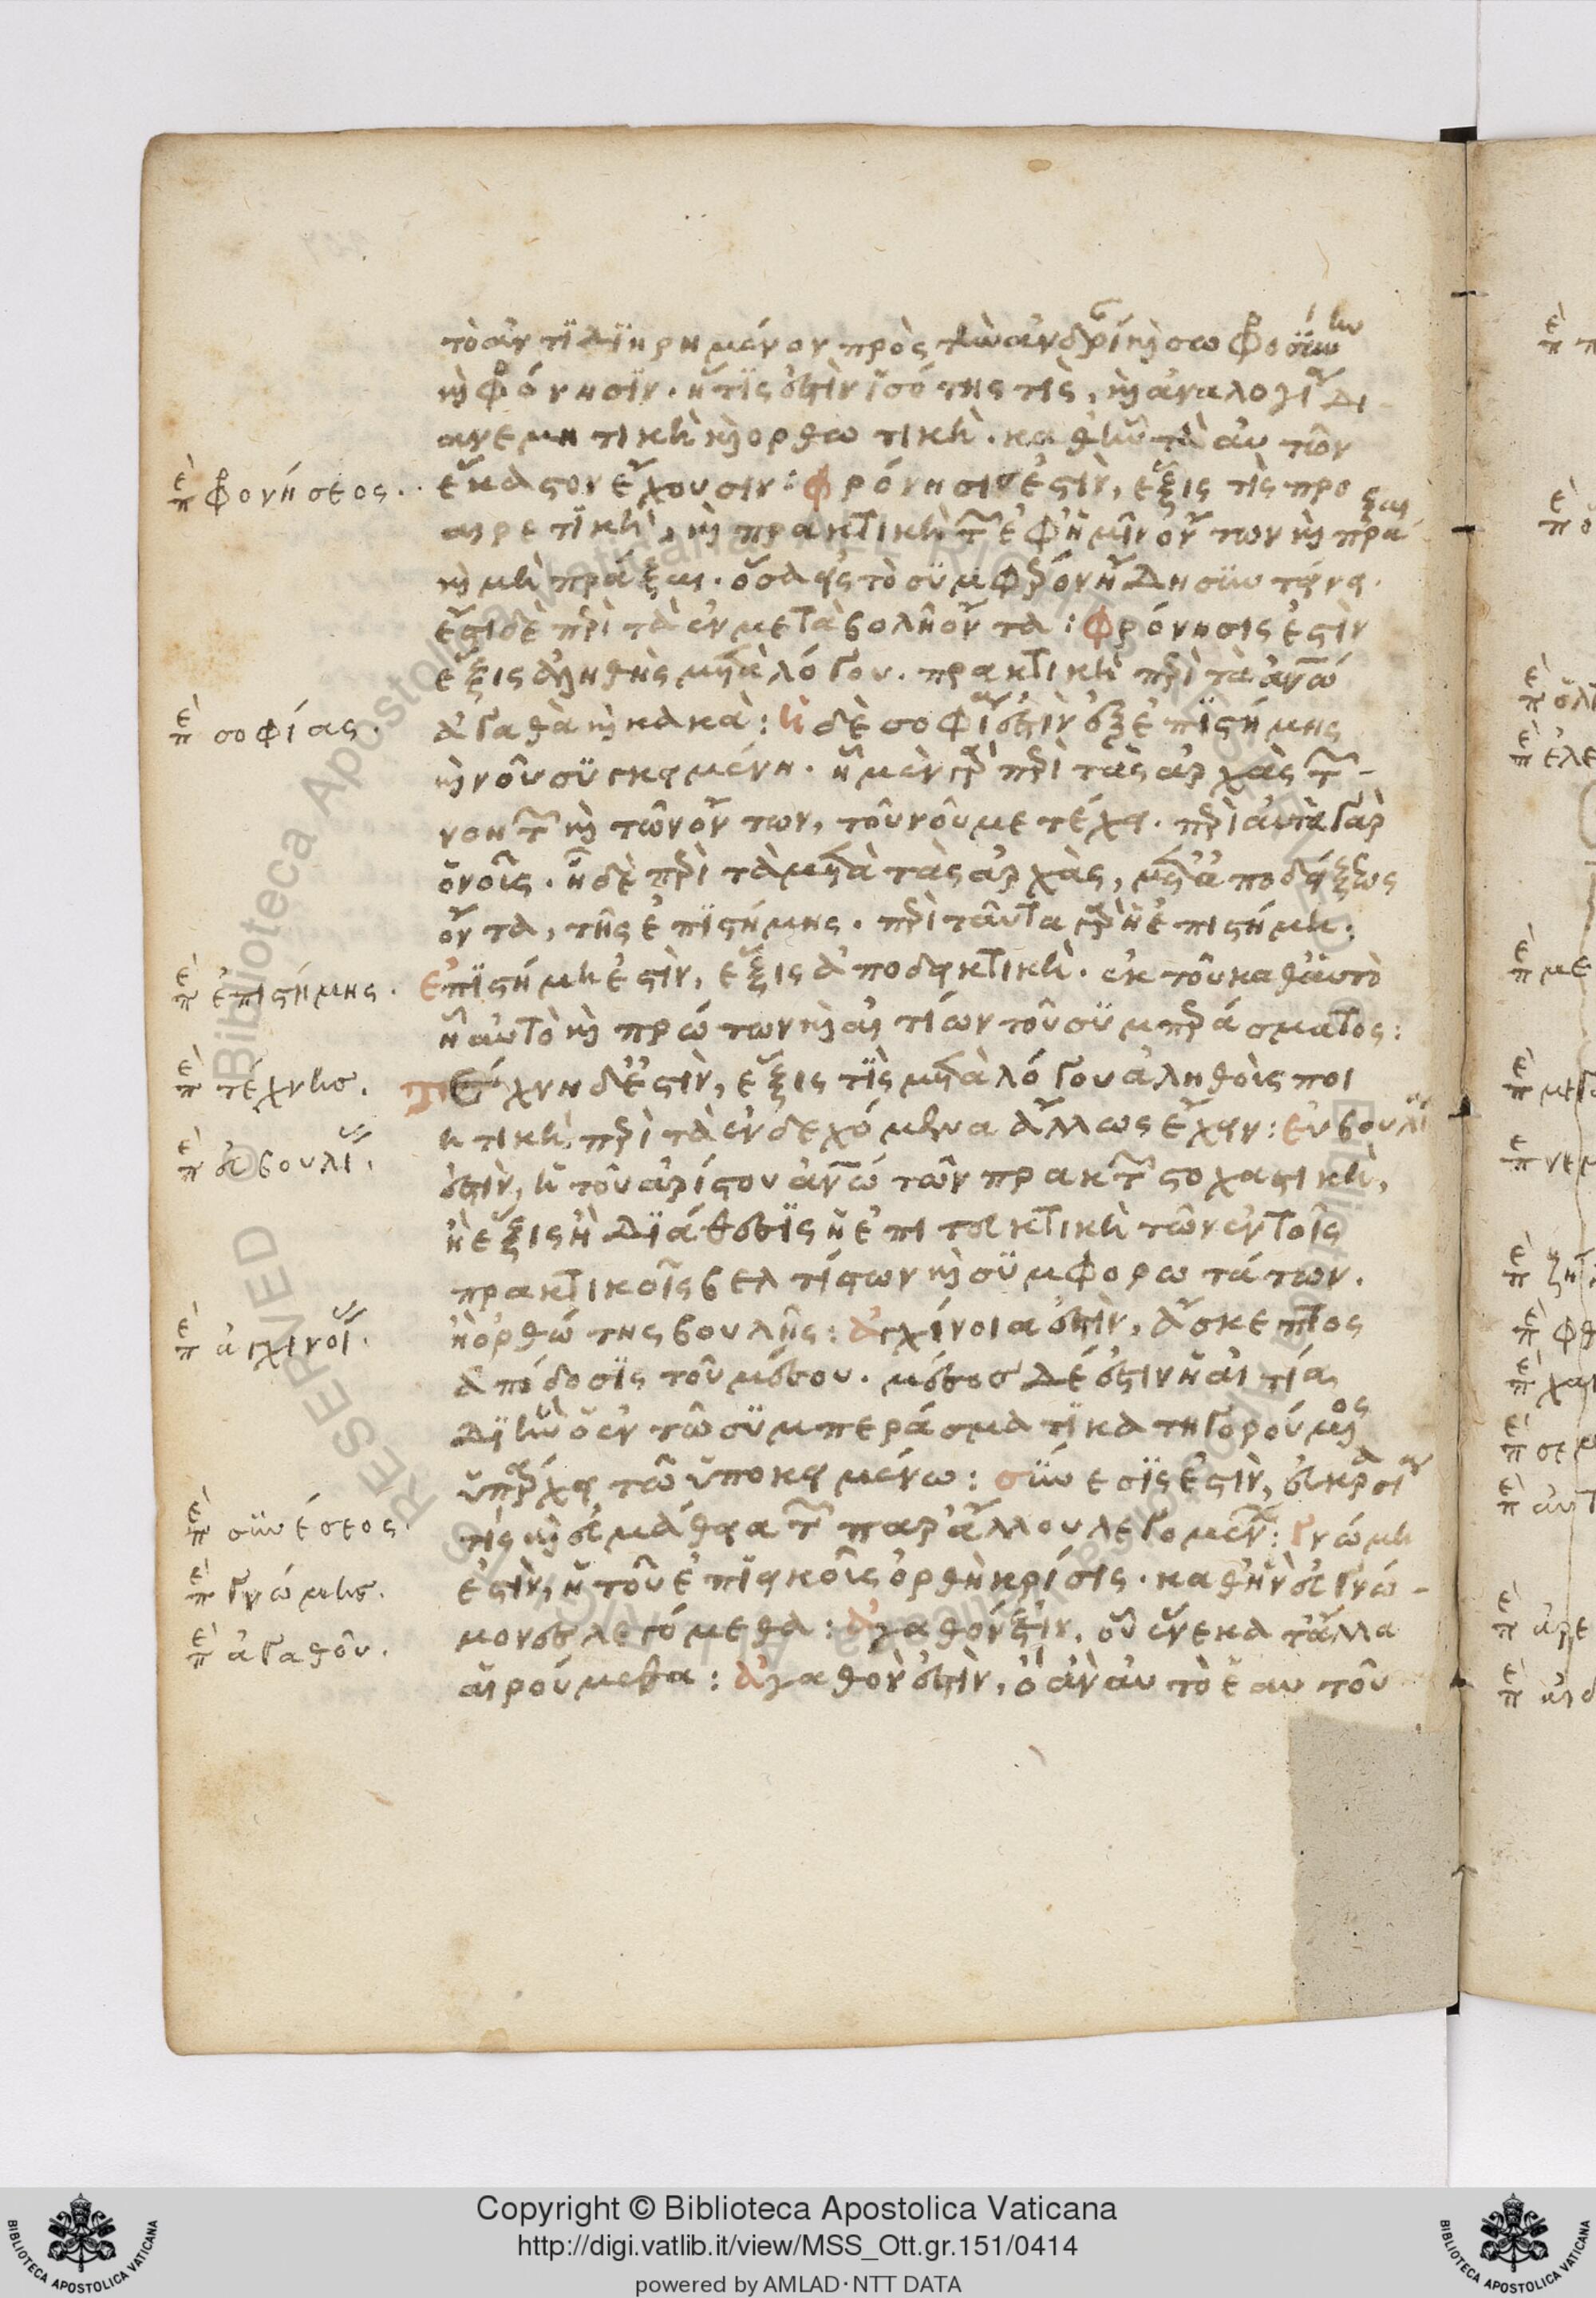 τὸ ἀντιδιῃρημένον πρὸς τὴν ἀνδρίαν καὶ σωφροσύνην
καὶ φρόνησιν. ἥτις ἐστὶν ἰσότης τίς, καὶ ἀναλογία δι
ανεμητικὴ καὶ ορθωτικὴ. καθ ἣν τὰ αυτῶν
ἕκαστον ἔχουσιν: φρόνησις ἐστὶν, ἕξις τὶς προ
αιρετικὴ, καὶ πρακτικὴ τῶν ἐφ ἡμῖν ὄντων καὶ πράξαι
καὶ μὴ πράξαι. ὅσα εἰς τὸ συμφέρον ἤδη συντείνει.
ἔστι δὲ περὶ τὰ ἐν μεταβολῆ ὄντα: φρόνησις ἐστὶν
ἕξις ἀληθὴς μετὰ λόγου. πρακτικὴ περὶ τὰ ἀνθρώπω
ἀγαθὰ καὶ κακὰ: ἡ δὲ σοφία ἐστὶν ἐξ ἐπιστήμης
καὶ νοῦ συγκειμένη. ἡ μὲν γὰρ περὶ τὰς ἀρχὰς τῶν
νοητῶν καὶ τῶν ὄντων, τοῦ νοῦ μετέχει. περὶ αὐτὰ γὰρ
ὁ νοῦς. ἡ δὲ περὶ τὰ μετὰ τὰς ἀρχὰς, μετ ἀποδείξεως
ὄντα, τῆς ἐπιστήμης. περὶ ταῦτα γὰρ ἡ ἐπιστήμη:
ἐπιστήμη ἐστὶν, ἕξις ἀποδεικτικὴ. ἐκ τοῦ καθ αὑτὸ
ἡ αὐτὸ καὶ πρώτων καὶ αἰτίων τοῦ συμπεράσματος:
τέχνη δέ ἐστιν, ἕξις τὶς μετὰ λόγου ἀληθοῦς ποι
ητικὴ, περὶ τὰ ἐνδεχόμενα ἄλλως ἔχειν: εὐβουλία
ἐστὶν, ἡ τοῦ ἀρίστου ἀνθρώπω τῶν πρακτῶν στοχαστικὴ,
ἢ ἕξις ἢ διάθεσις ἢ ἐπιτευκτικὴ τῶν ἐν τοῖς
πρακτικοῖς βελτίστων καὶ συμφορωτάτων.
ἢ ὀρθώτης βουλῆς: ἀγχίνοια ἐστὶν, ἄσκεπτος
ἀπόδοσις τοῦ μέσου. μέσος δέ ἐστιν ἡ αἰτία,
δι ἣν ὁ ἐν τῶ συμπεράσματι κατηγορούμενος
ὑπάρχει τῶ ὑποκειμένω: σύνεσις ἐστὶν, εὐκρασία
τὶς καὶ εὐμάθεια τῶν παρ ἄλλου λεγομένων: γνώμη
ἐστὶν, ἡ τοῦ ἐπιεικοῦς ὀρθὴ κρίσις. καθ ἣν εὐγνώ-
μονες λεγόμεθα: ἀγαθόν ἐστιν, οὗ ἕνεκα τἄλλα
αἱρούμεθα: ἀγαθὸν ἐστὶν, ὃ ἂν αὐτὸ ἑαυτοῦ
ἐπὶ φρονήσεος.
ἐπὶ σοφίας.
ἐπὶ ἐπιστήμης.
ἐπὶ τέχνης.
ἐπὶ εὐβουλίας.
ἐπὶ ἀγχινοίας.
ἐπὶ συνέσεος.
ἐπὶ γνώμης.
ἐπὶ ἀγαθοῦ.
Copyright © Biblioteca Apostolica Vaticana
http://digi.vatlib.it/view/MSS_Ott.gr.151/0414
powered by AMLAD·NTT DATA
BIBLIOTECA APOSTOLICA VATICANA
BIBLIOTECA APOSTOLICA VATICANA